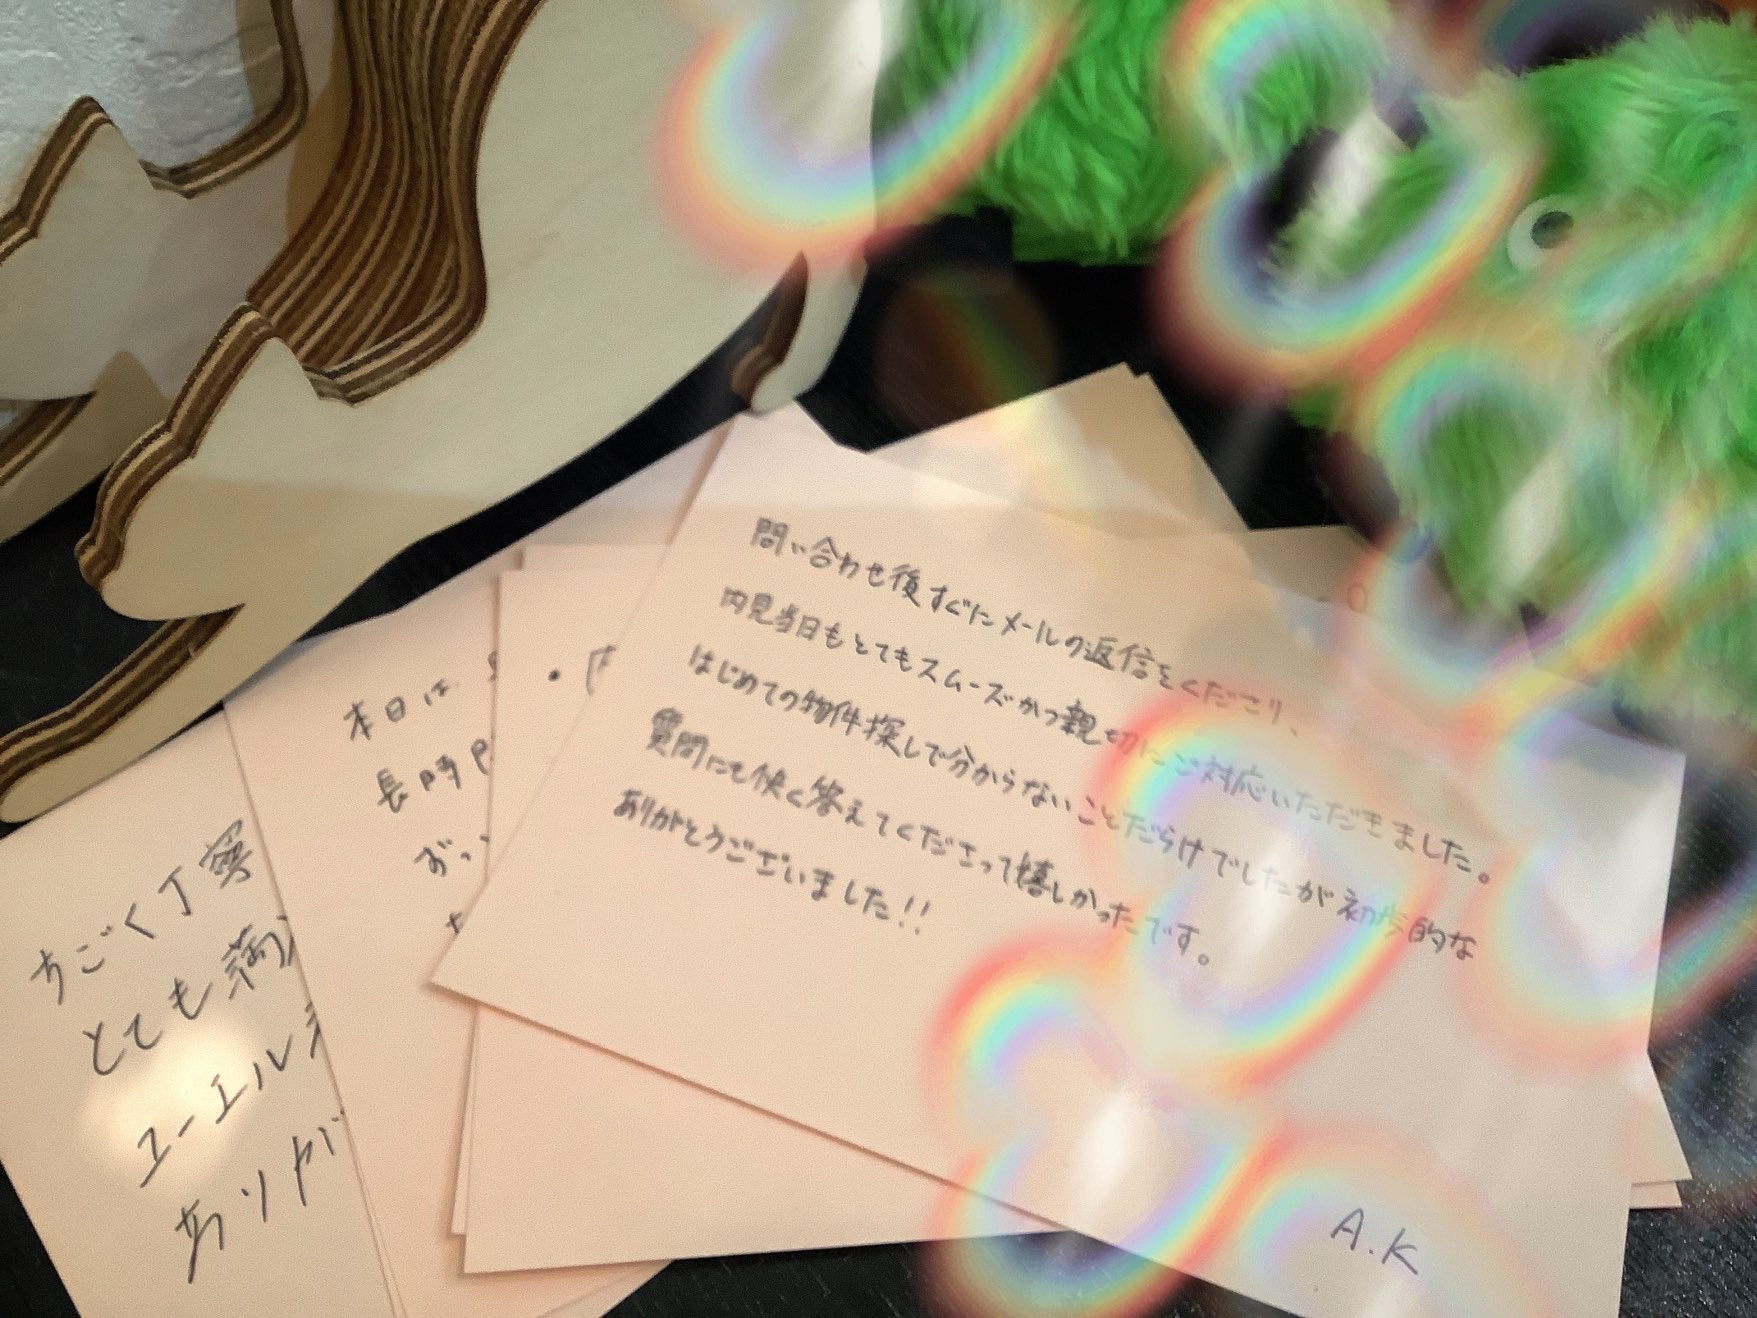 問い合わせ後すぐにメールの返信をくださり、
内見当日もとてもスムーズかつ親切にご対応いただきました。
はじめての物件探しで分からないことだらけでしたが初歩的な
質問にも快く答えてくださって嬉しかったです。
ありがとうございました!!
A.K
本日は
長時
ずっ
すごく丁寧
とても満
ユーエル
ありが